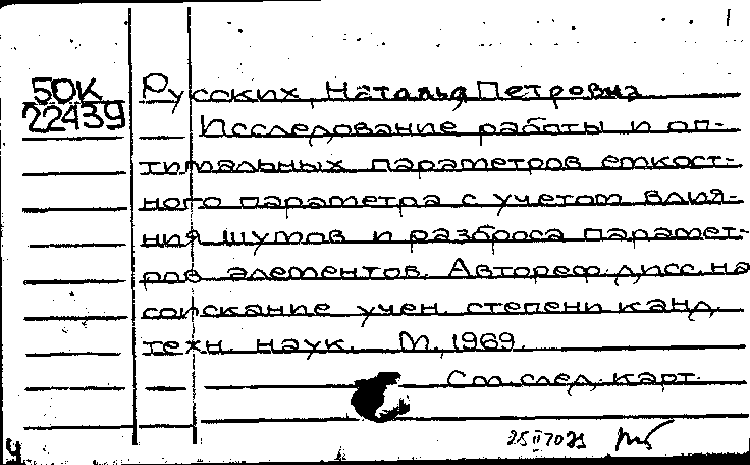 50К
22439
Русских, Наталья Петровна
Исследование работы и оп-
тимальных параметров емкост-
ного параметра с учетом влия-
ния шумов и разброса парамет-
ров элементов. Автореф. дисс. на
соискание учен. степени канд.
техн. наук. М., 1969.
См. след. карт.